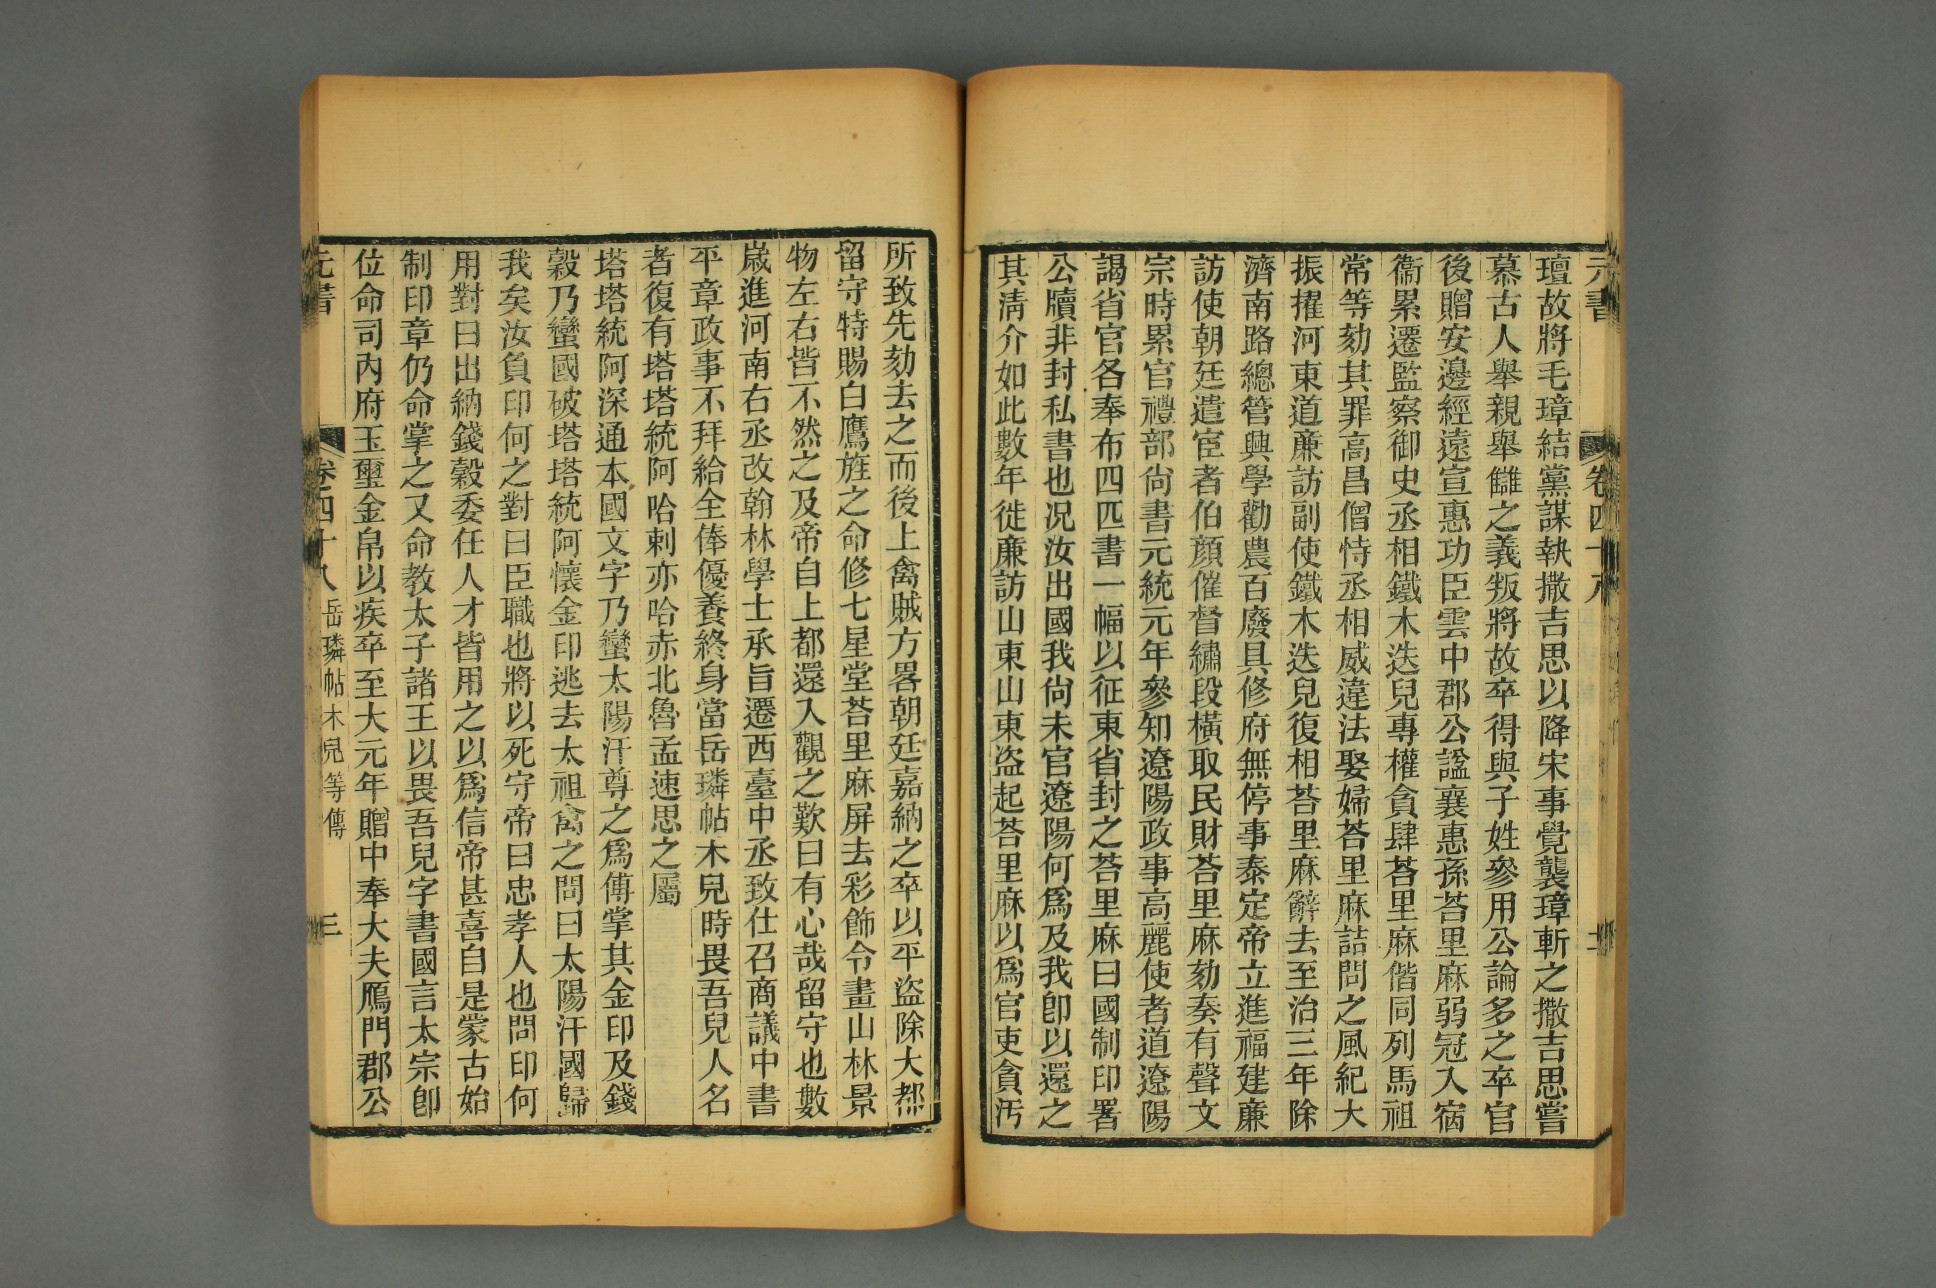 元書
卷四十八
壇故將毛璋結黨謀執撒吉思以降宋事覺襲璋斬之撒吉思嘗
慕古人舉親舉讎之義叛將故卒得與子姓參用公論多之卒官
後贈安邊經遠宣惠功臣雲中郡公謚襄惠孫荅里麻弱冠入宿
衞累遷監察御史丞相鐵木迭兒專權貪肆荅里麻偕同列馬祖
常等劾其罪高昌僧恃丞相威違法娶婦荅里麻詰問之風紀大
振擢河東道廉訪副使鐵木迭兒復相荅里麻辭去至治三年除
濟南路總管興學勸農百廢具修府無停事泰定帝立進福建廉
訪使朝廷遣宦者伯顏催督繡段橫取民財荅里麻劾奏有聲文
宗時累官禮部尙書元統元年參知遼陽政事高麗使者道遼陽
謁省官各奉布四匹書一幅以征東省封之荅里麻曰國制印署
公牘非封私書也况汝出國我尙未官遼陽何爲及我卽以還之
其淸介如此數年徙廉訪山東山東盜起荅里麻以爲官吏貪汚
所致先劾去之而後上禽賊方畧朝廷嘉納之卒以平盜除大都
留守特賜白鷹旌之命修七星堂荅里麻屏去彩飾令畫山林景
物左右皆不然之及帝自上都還入觀之歎曰有心哉留守也數
歲進河南右丞改翰林學士承旨遷西臺中丞致仕召商議中書
平章政事不拜給全俸優養終身當岳璘帖木兒時畏吾兒人名
者復有塔塔統阿哈剌亦哈赤北魯孟速思之屬
塔塔統阿深通本國文字乃蠻太陽汗尊之爲傅掌其金印及錢
穀乃蠻國破塔塔統阿懷金印逃去太祖禽之問曰太陽汗國歸
我矣汝負印何之對曰臣職也將以死守帝曰忠孝人也問印何
用對曰出納錢穀委任人才皆用之以爲信帝甚喜自是蒙古始
制印章仍命掌之又命敎太子諸王以畏吾兒字書國言太宗卽
位命司內府玉璽金帛以疾卒至大元年贈中奉大夫鴈門郡公
元書
卷四十八 岳璘帖木兒等傳
三